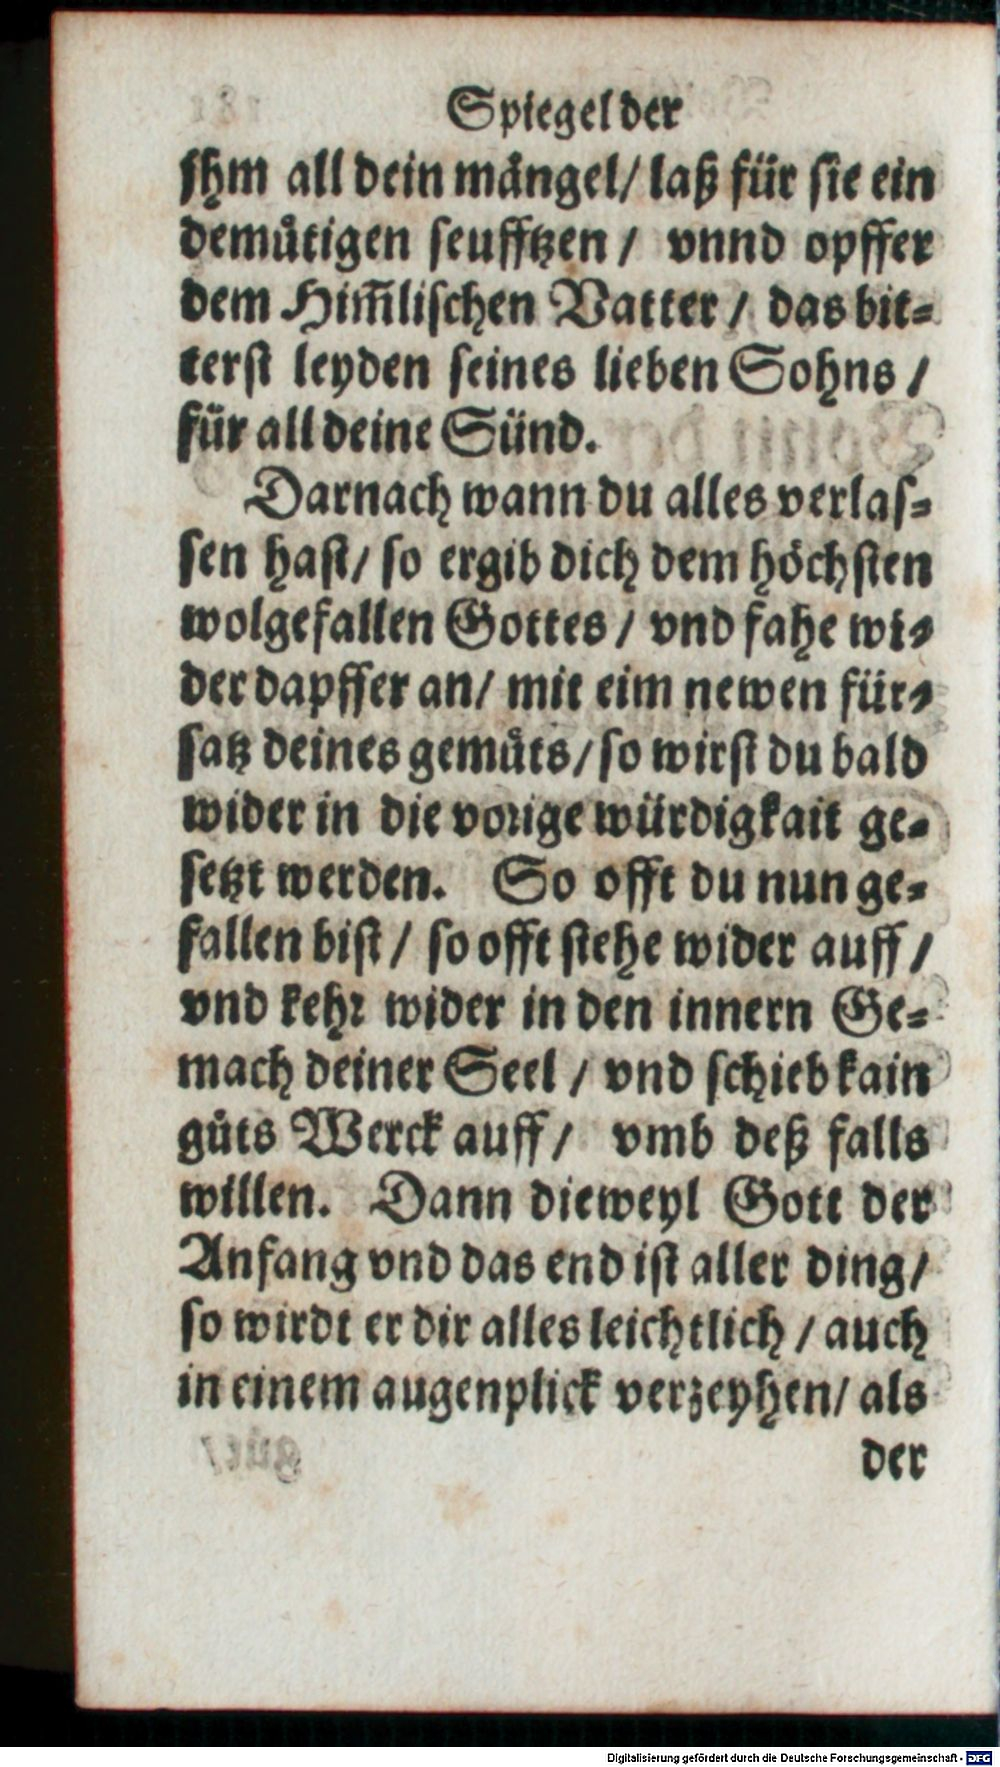 Spiegel der
jhm all dein mängel/ laß für sie ein
demuͤtigen seufftzen / vnnd opffer
dem Him̃lischen Vatter / das bit-
terst leyden seines lieben Sohns /
für all deine Sünd.
Darnach wann du alles verlas-
sen hast/ so ergib dich dem höchsten
wolgefallen Gottes / vnd fahe wi-
der dapffer an/ mit eim newen für-
satz deines gemuͤts/ so wirst du bald
wider in die vorige würdigkait ge-
setzt werden. So offt du nun ge-
fallen bist / so offt stehe wider auff /
vnd kehr wider in den innern Ge-
mach deiner Seel / vnd schieb kain
guͦts Werck auff / vmb deß falls
willen. Dann dieweyl Gott der
Anfang vnd das end ist aller ding/
so wirdt er dir alles leichtlich / auch
in einem augenplick verzeyhen/ als
der
Digitalisierung gefördert durch die Deutsche Forschungsgemeinschaft - DFG